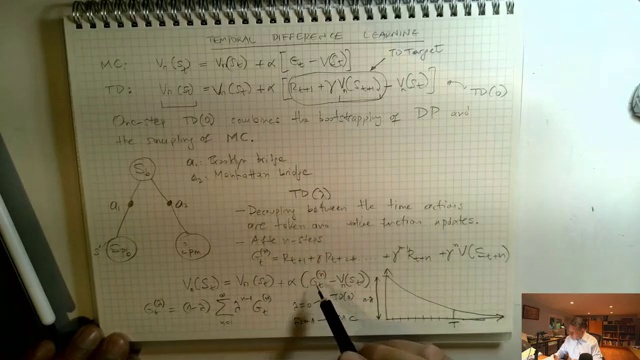 TEMPORAL DIFFERENCE LEARNING
MC: Vπ(St) = Vπ(St) + α [Gt − V(St)]
TD Target
TD: Vπ(St) = Vπ(St) + α [Rt+1 + γ Vπ(St+1) − Vπ(St)]
TD(0)
One-step TD(0) combines the bootstrapping of DP and
the sampling of MC.
a1: Brooklyn bridge
a2: Manhattan bridge
a1
a2
TD(λ)
- Decoupling between the time actions
are taken and value function updates.
- After n-steps
Gt(n) = Rt+1 + γ Rt+2 + γ^n V(St+n)
Vπ(St) = Vπ(St) + α (
− Vπ(St))
λ=0
TD(0)
T